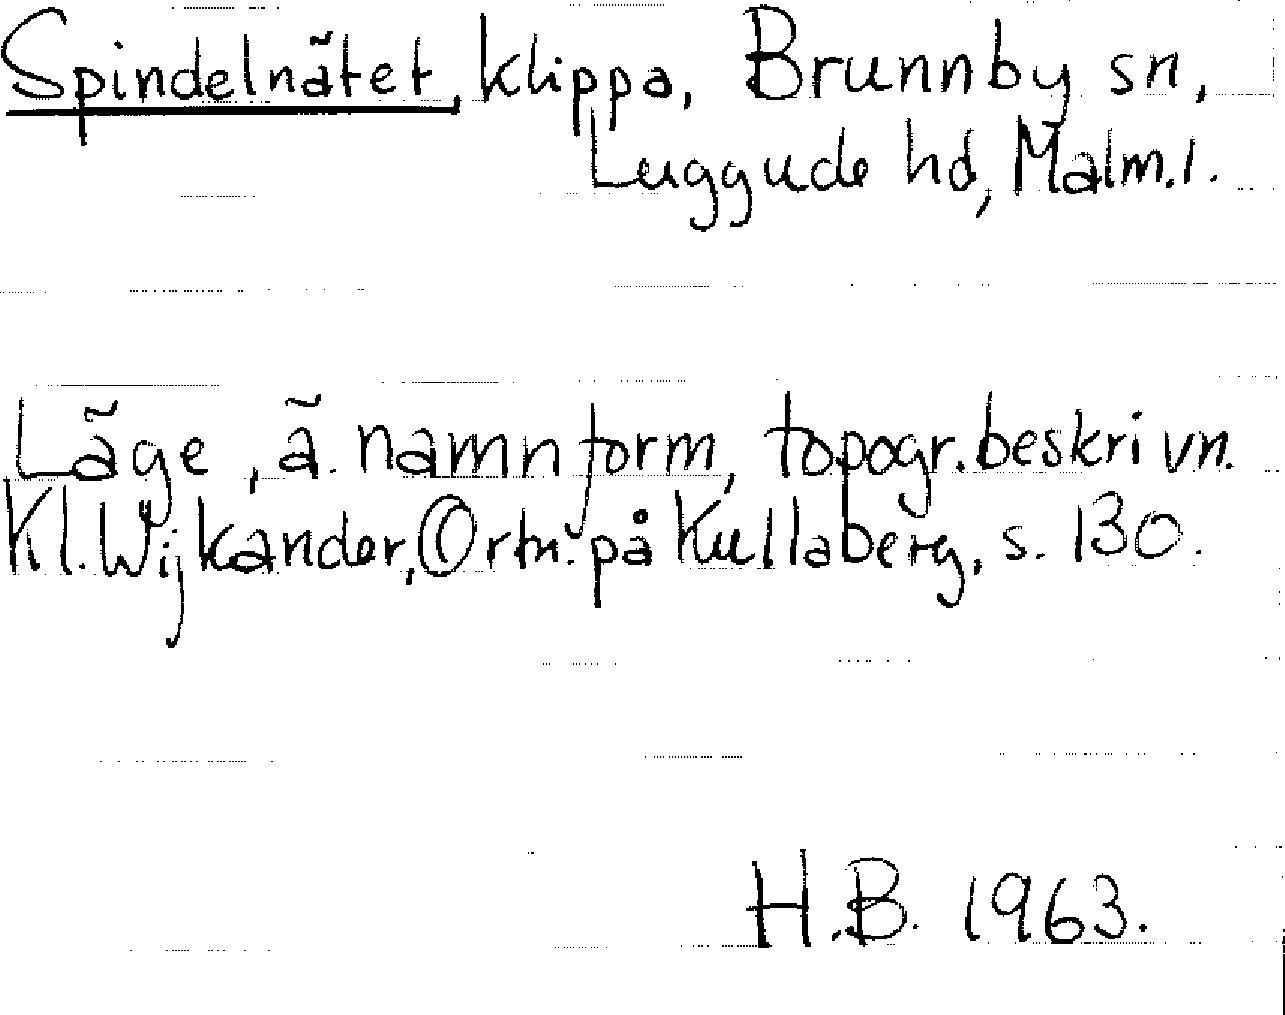 Spindelnätet, klippa, Brunnby sn,
Luggude hd, Malm.l.
Läge, ä. namnform, topogr. beskrivn.
Kl. Wijkander, Ortn. på Kullaberg, s. 130.
H.B. 1963.